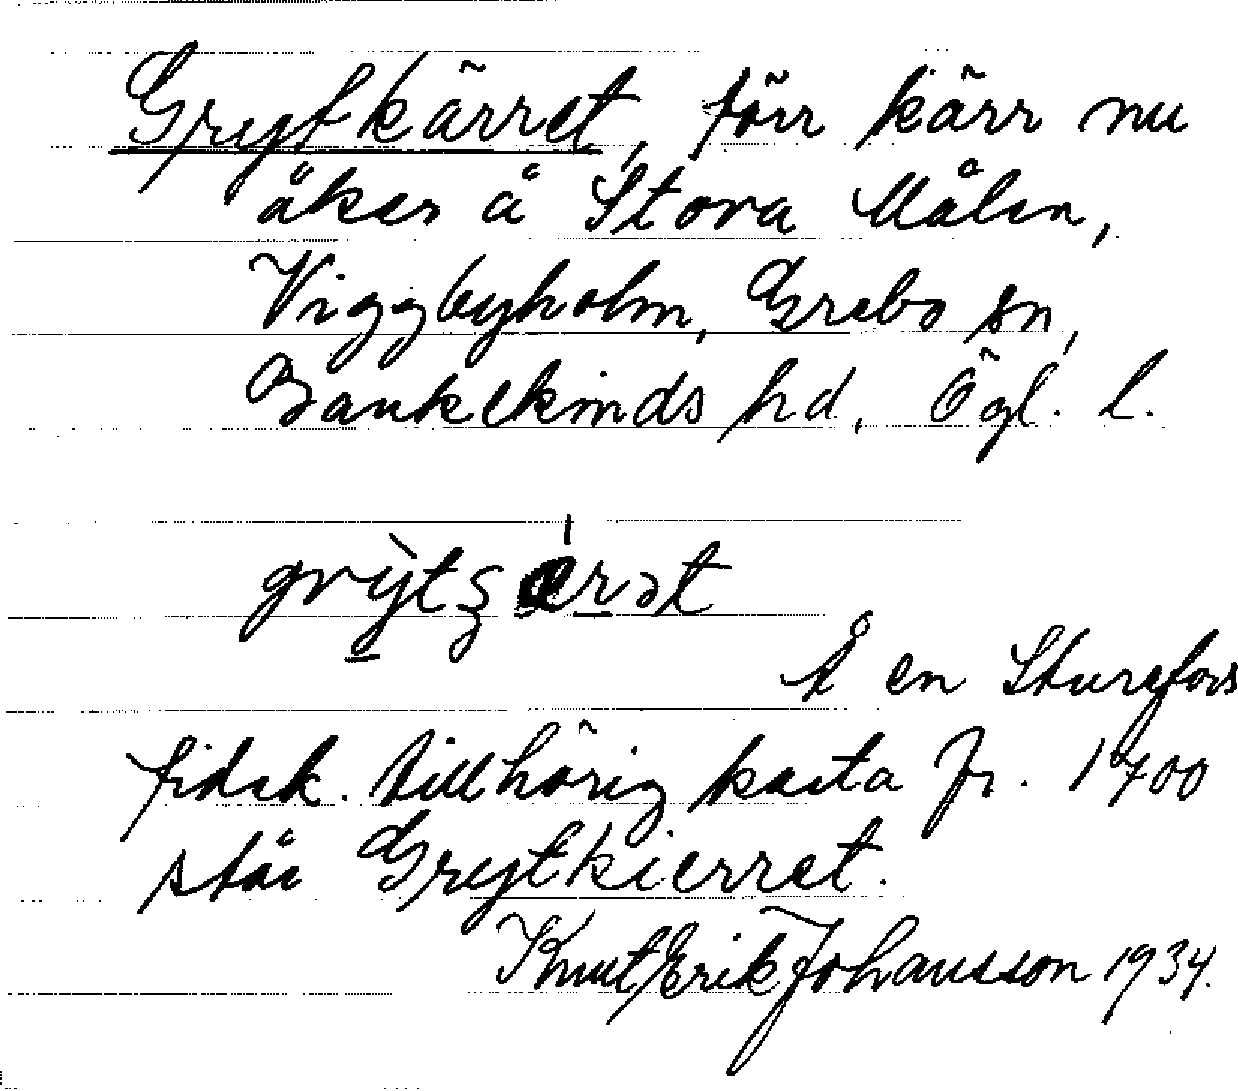 Grytkärret, förr kärr nu
åker å Stora Målen,
Viggbyholm, Grebo sn,
Bankekinds hd, Ögl. l.
grỳtʂærət
Å en Sturefors
fidek. tillhörig karta fr. 1700
står Grytkierret.
Knut Erik Johansson 1934.